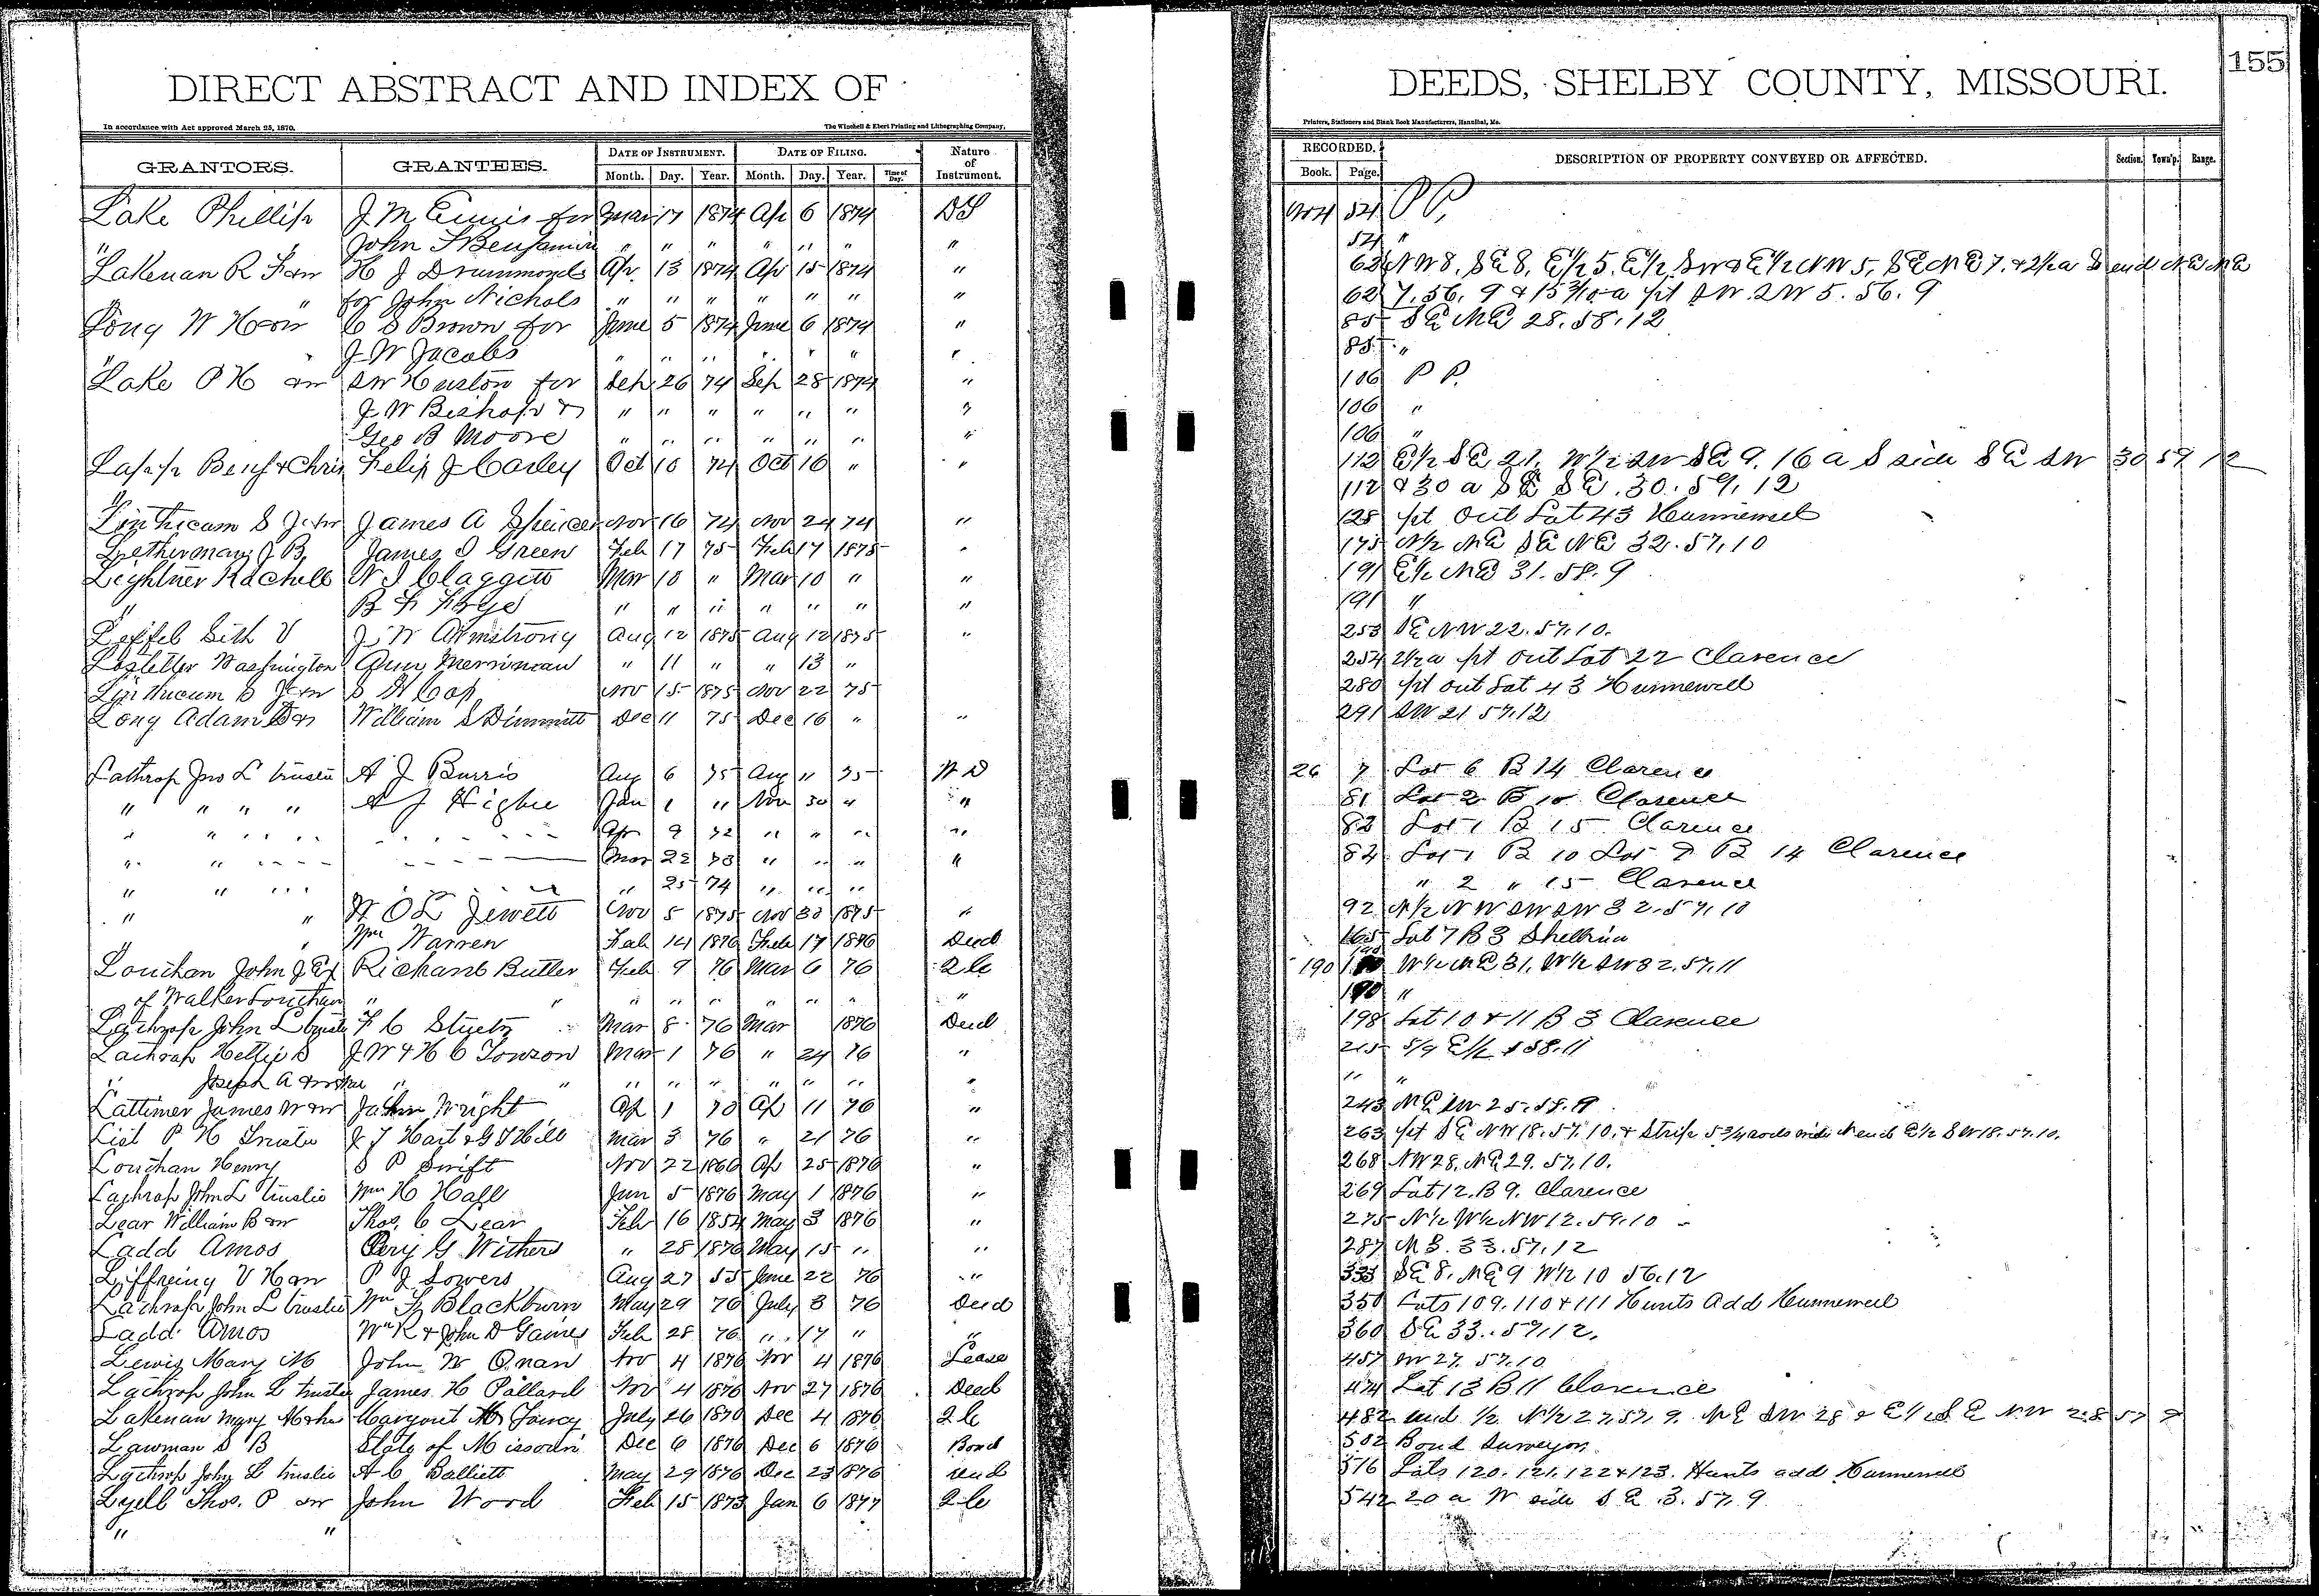 155
DIRECT ABSTRACT AND INDEX OF DEEDS, SHELBY COUNTY, MISSOURI.
In accordance with Act approved March 25, 1870. The Winchell & Ebert Printing and Lithographing Company, Printers, Stationers and Blank Book Manufacturers, Hannibal, Mo.
GRANTORS. GRANTEES. DATE OF INSTRUMENT. DATE OF FILING. Nature of Instrument. RECORDED. DESCRIPTION OF PROPERTY CONVEYED OR AFFECTED. Section. Town'p. Range.
Month. Day. Year. Month. Day. Year. Time of Day. Book. Page.
Lake Phillip J M Ennis for Mar 17 1874 Ap 6 1874 54 PP,
" John S Benjamin " " " " " " " 54 "
Lakenan R F & w H J Drummonds Ap 13 1874 Ap 15 1874 " 62 NW 8, SE 8, E½ 5, E½ SW & E½ NW 5, SE NE 7, & 2½ a S end NE NE
" for John Nichols " " " " " " " 62 7. 56. 9 & 15 a pt SW SW 5. 56. 9
Long W H & w C S Brown for June 5 1874 June 6 1874 " 85 SE NE 28. 58. 12
" J W Jacobs " " " " " " " 85 "
Lake P H & w S W Huston for Sep 26 74 Sep 28 1874 " 106 P P.
J W Bishop & " " " " " " " 106 "
Geo B Moore " " " " " " " 106 "
Lapp Benj & Chris Felix J Corley Oct 10 74 Oct 16 " " 112 E½ SE 21, W½ SW SE 9, 16 a S side SE SW 30 59 12
" 112 & 30 a SE SE. 30. 59. 12
Linthicum S J & w James A Spencer Nov 16 74 Nov 24 74 " 128 pt Out Lot 43 Hunnewell
Letherman J B, James S Green Feb 17 75 Feb 17 1875 " 175 N½ NE SE NE 32. 57. 10
Lightner Rachell W J Claggett Mar 10 " Mar 10 " " 191 E½ NE 31. 58. 9
" B F Frye " " " " " " " 191 "
Loffel Sith V J W Armstrong Aug 12 1875 Aug 12 1875 " 253 SE NW 22. 57. 10.
Lostetter Washington Ann Merriman " 11 " " 13 " 254 2½ a pt out Lot 22 Clarence
Linthicum S J & w S H Cop Nov 15 1875 Nov 22 75 280 pt out Lot 43 Hunnewell
Long Adam William S Dimmitt Dec 11 75 Dec 16 " " 291 SW 21 57. 12
Lathrop Jno L trustee A J Burris Aug 6 75 Aug 11 75 W D 26 7 Lot 6 B 14 Clarence
" " " " A J Higbee Jan 1 " Nov 30 " " 81 Lot 2 B 10 Clarence
" " " " " " Apr 9 72 " " " " 82 Lot 1 B 15 Clarence
" " " " " " Mar 22 73 " " " " 84 Lot 1 B 10 Lot 7 B 14 Clarence
" " " " " 25 74 " " " " 2 " 15 Clarence
" " W O L Jewett Nov 5 1875 Nov 30 1875 " 92 N½ NW SW SW 32. 57. 10
" " Wm Warren Feb 14 1876 Feb 17 1876 Deed 165 Lot 7 B 3 Shelbina
Louthan John J Ex Richard Butler Feb 9 76 Mar 6 76 2 C 190 W½ NE 31, W½ SW 32. 57. 11
of Walker Louthan " " " " " " " " " 190 "
Lathrop John L trustee F C Stuetz Mar 8 76 Mar 1876 Deed 198 Lot 10 & 11 B 3 Clarence
Lathrop Hettie S J W & H C Towson Mar 1 76 " 24 76 " 215 5/9 E½ 58. 11
" Joseph A " " " " " " " " " " "
Lattimer James W & w Wright Ap 1 70 Ap 11 76 " 243 NE SW 25. 58. 9
List P H Trustee J T Hart & G T Hill Mar 3 76 " 21 76 " 263 pt SE NW 18. 57. 10. & Strip 5¾ rods wide N end E½ SW 18. 57. 10.
Louthan Henry S P Swift Nov 22 1860 Ap 25 1876 " 268 NW 28, NE 29. 57. 10.
Lathrop John L trustee Wm H Hall Jun 5 1876 May 1 1876 " 269 Lot 12. B 9. Clarence
Lear William B & w Thos. C Lear Feb 16 1854 May 3 1876 " 275 N½ W½ NW 12. 59. 10
Ladd Amos Perry G Withers " 28 1876 May 15 " " 287 33. 57. 12
Liffreing V H & w P J Sowers Aug 27 55 June 22 76 " 333 SE 8, NE 9 W½ 10 56. 12
Lathrop John L trustee Wm Blackburn May 29 76 July 3 76 Deed 350 Lots 109. 110 & 111 Hunts Add Hunnewell
Ladd Amos Wm R & John D Gaines Feb 28 76 " 17 " " 360 SE 33. 57. 12.
Lewis Mary M John W Onan Nov 4 1876 Nov 4 1876 Lease 457 SW 27. 57. 10
Lathrop John L trustee James H Pollard Nov 4 1876 Nov 27 1876 Deed 474 Lot 13 B 11 Clarence
Lakenan Mary M & hus Margaret M Toncy July 26 1870 Dec 4 1876 2 C 482 und ½ N½ 27. 57. 9. NE SW 28 & E½ SE NW 28 57 9
Lawman S B State of Missouri Dec 6 1876 Dec 6 1876 Bond 502 Bond Surveyor
Lathrop John L trustee A C Balliett May 29 1876 Dec 23 1876 Deed 516 Lots 120. 121. 122 & 123. Hunts add Hunnewell
Lyell Thos. P & w John Wood Feb 15 1873 Jan 6 1877 2 C 542 20 a W side SE 3. 57. 9
" "